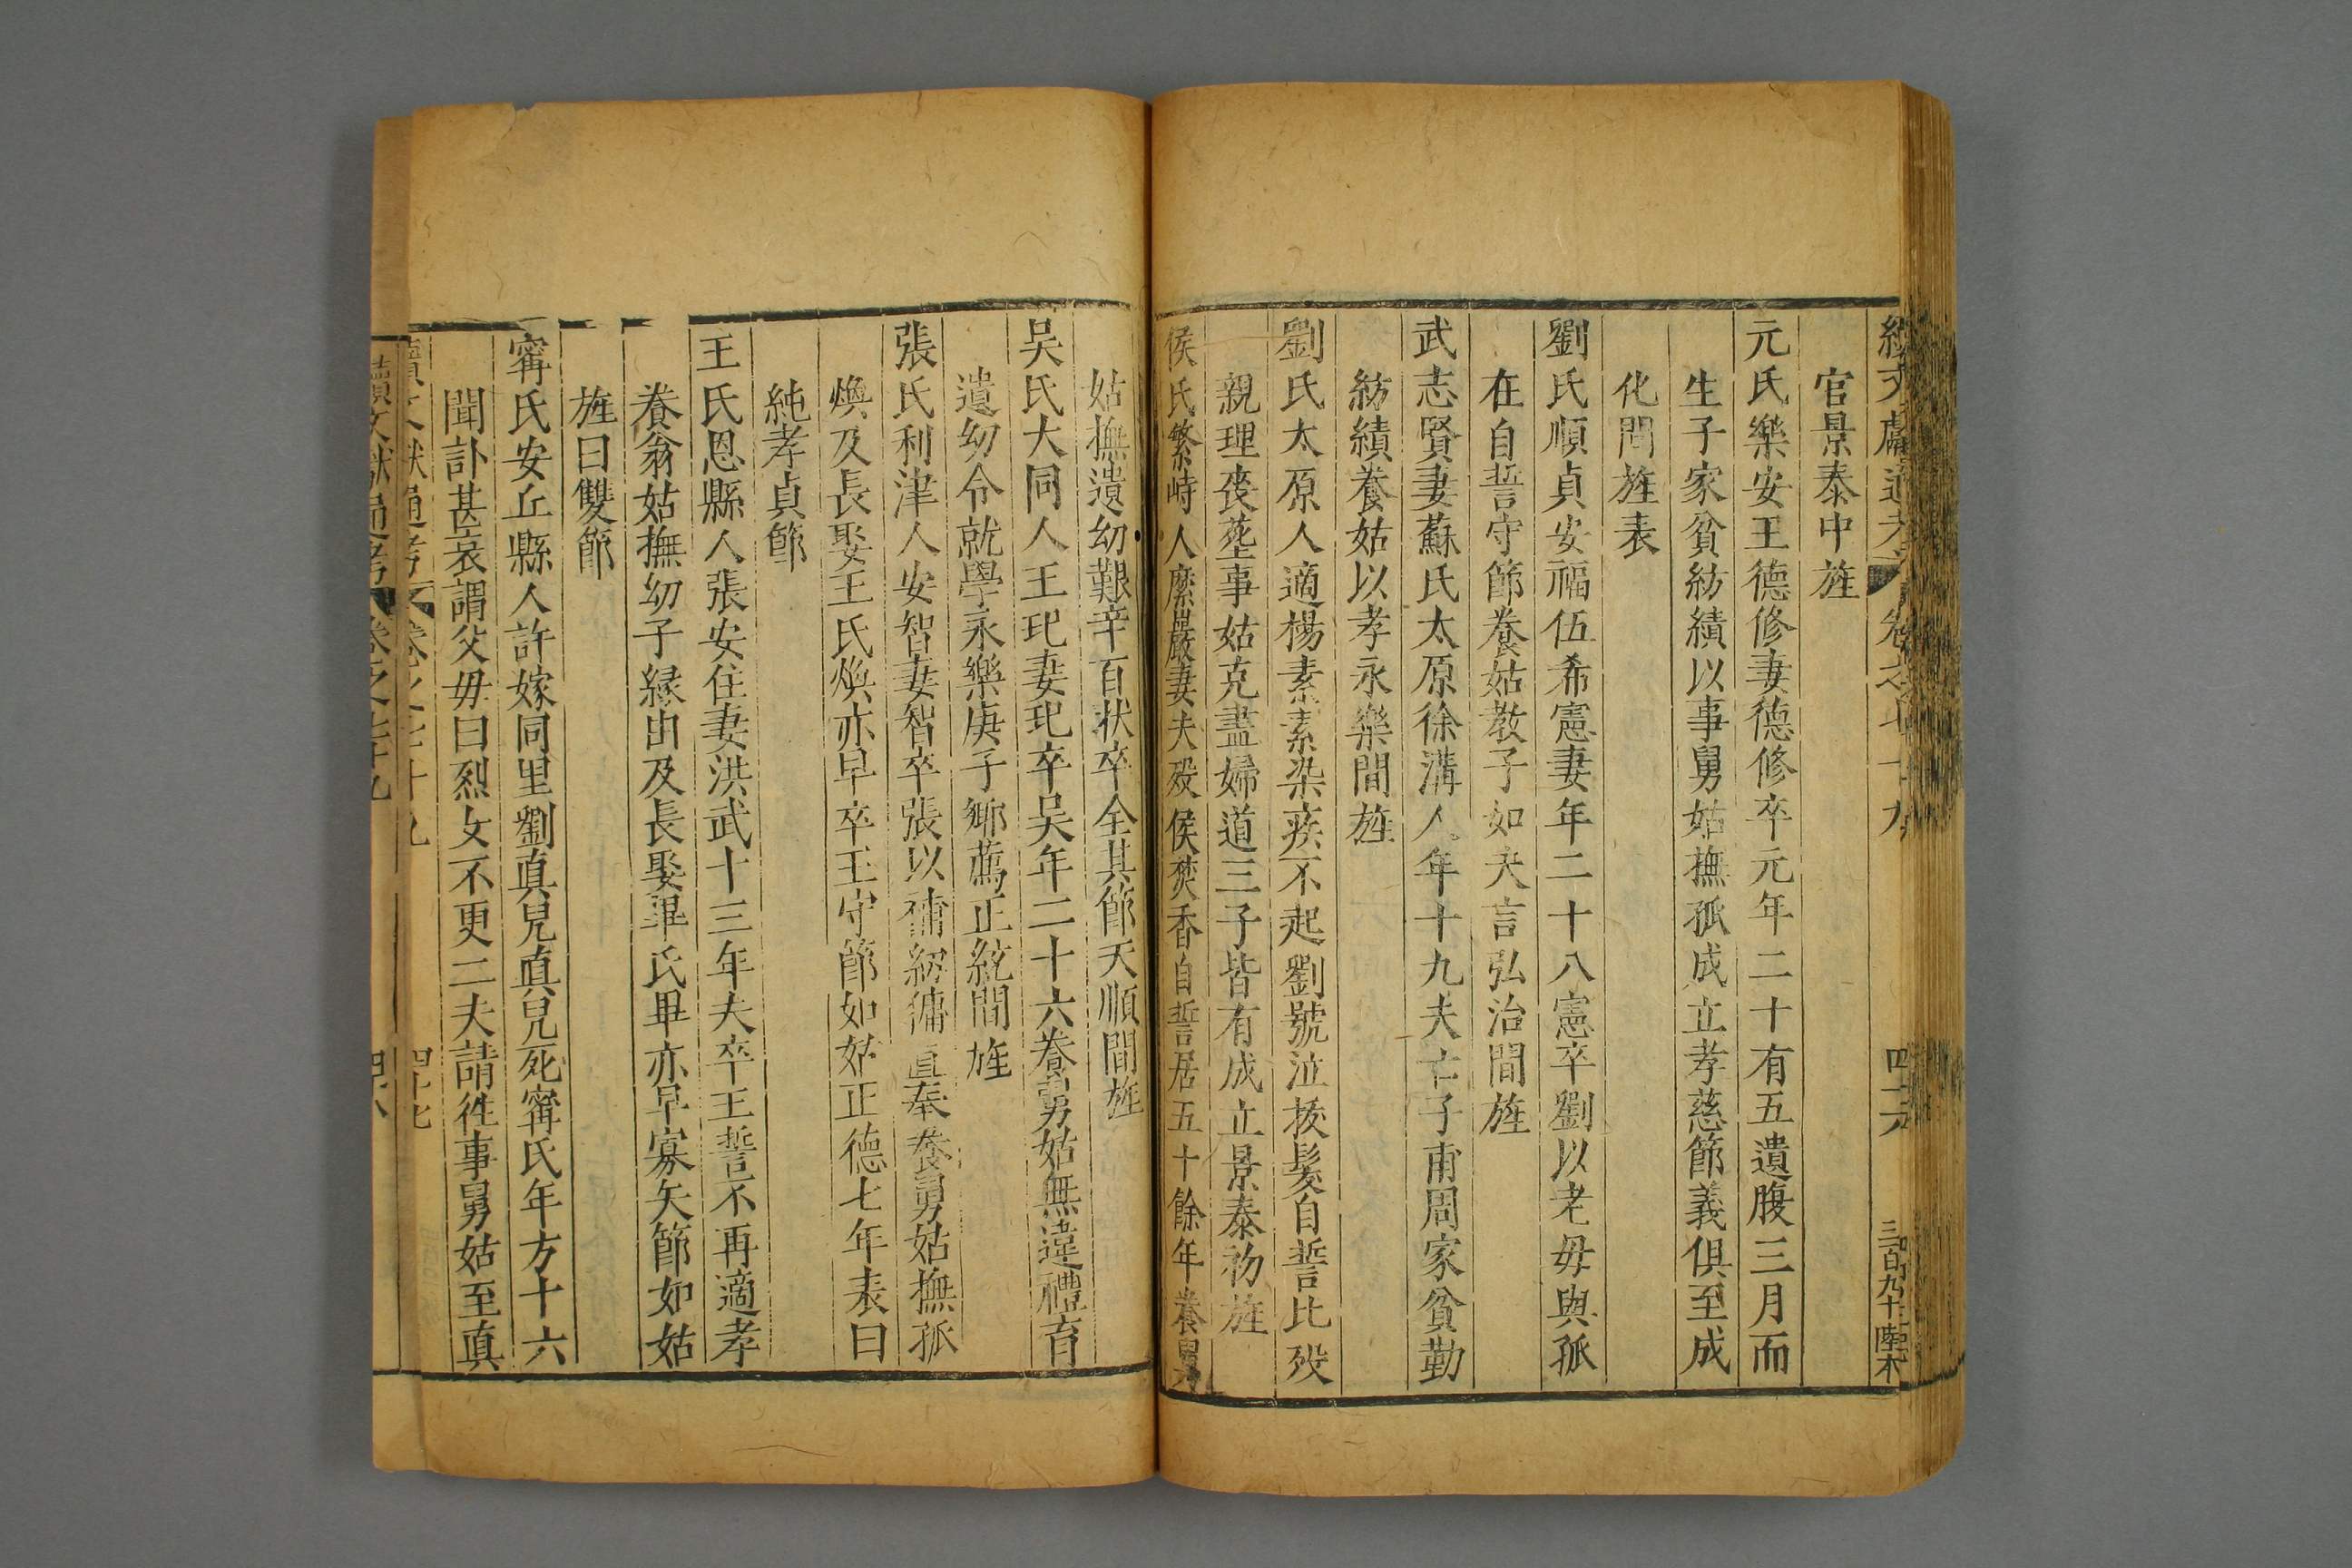 續文獻通考 卷之七十九 四十六
官景泰中旌
元氏樂安王德修妻德修卒元年二十有五遺腹三月而
生子家貧紡績以事舅姑撫孤成立孝慈節義俱至成
化間旌表
劉氏順貞安福伍希憲妻年二十八憲卒劉以老毋與孤
在自誓守節養姑教子如夫言弘治間旌
武志賢妻蘇氏太原徐溝人年十九夫亡子甫周家貧勤
紡績養姑以孝永樂間旌
劉氏太原人適楊素素染疾不起劉號泣拔髮自誓比歿
親理喪塟事姑克盡婦道三子皆有成立景泰初旌
侯氏繁峙人麽嚴妻夫歿侯焚香自誓居五十餘年養舅
姑撫遺幼艱辛百狀卒全其節天順間旌
吳氏大同人王玘妻玘卒吳年二十六養舅姑無違禮育
遺幼令就學永樂庚子鄉薦正統間旌
張氏利津人安智妻智卒張以補紉傭直奉養舅姑撫孤
煥及長娶王氏煥亦早卒王守節如姑正德七年表曰
純孝貞節
王氏恩縣人張安住妻洪武十三年夫卒王誓不再適孝
養翁姑撫幼子緣由及長娶畢氏畢亦早寡矢節如姑
旌曰雙節
甯氏安丘縣人許嫁同里劉真兒真兒死甯氏年方十六
聞訃甚哀謂父毋曰烈女不更二夫請徃事舅姑至真
續文獻通考 卷之七十九 四十七
續文獻通考 卷之七十九 四十八